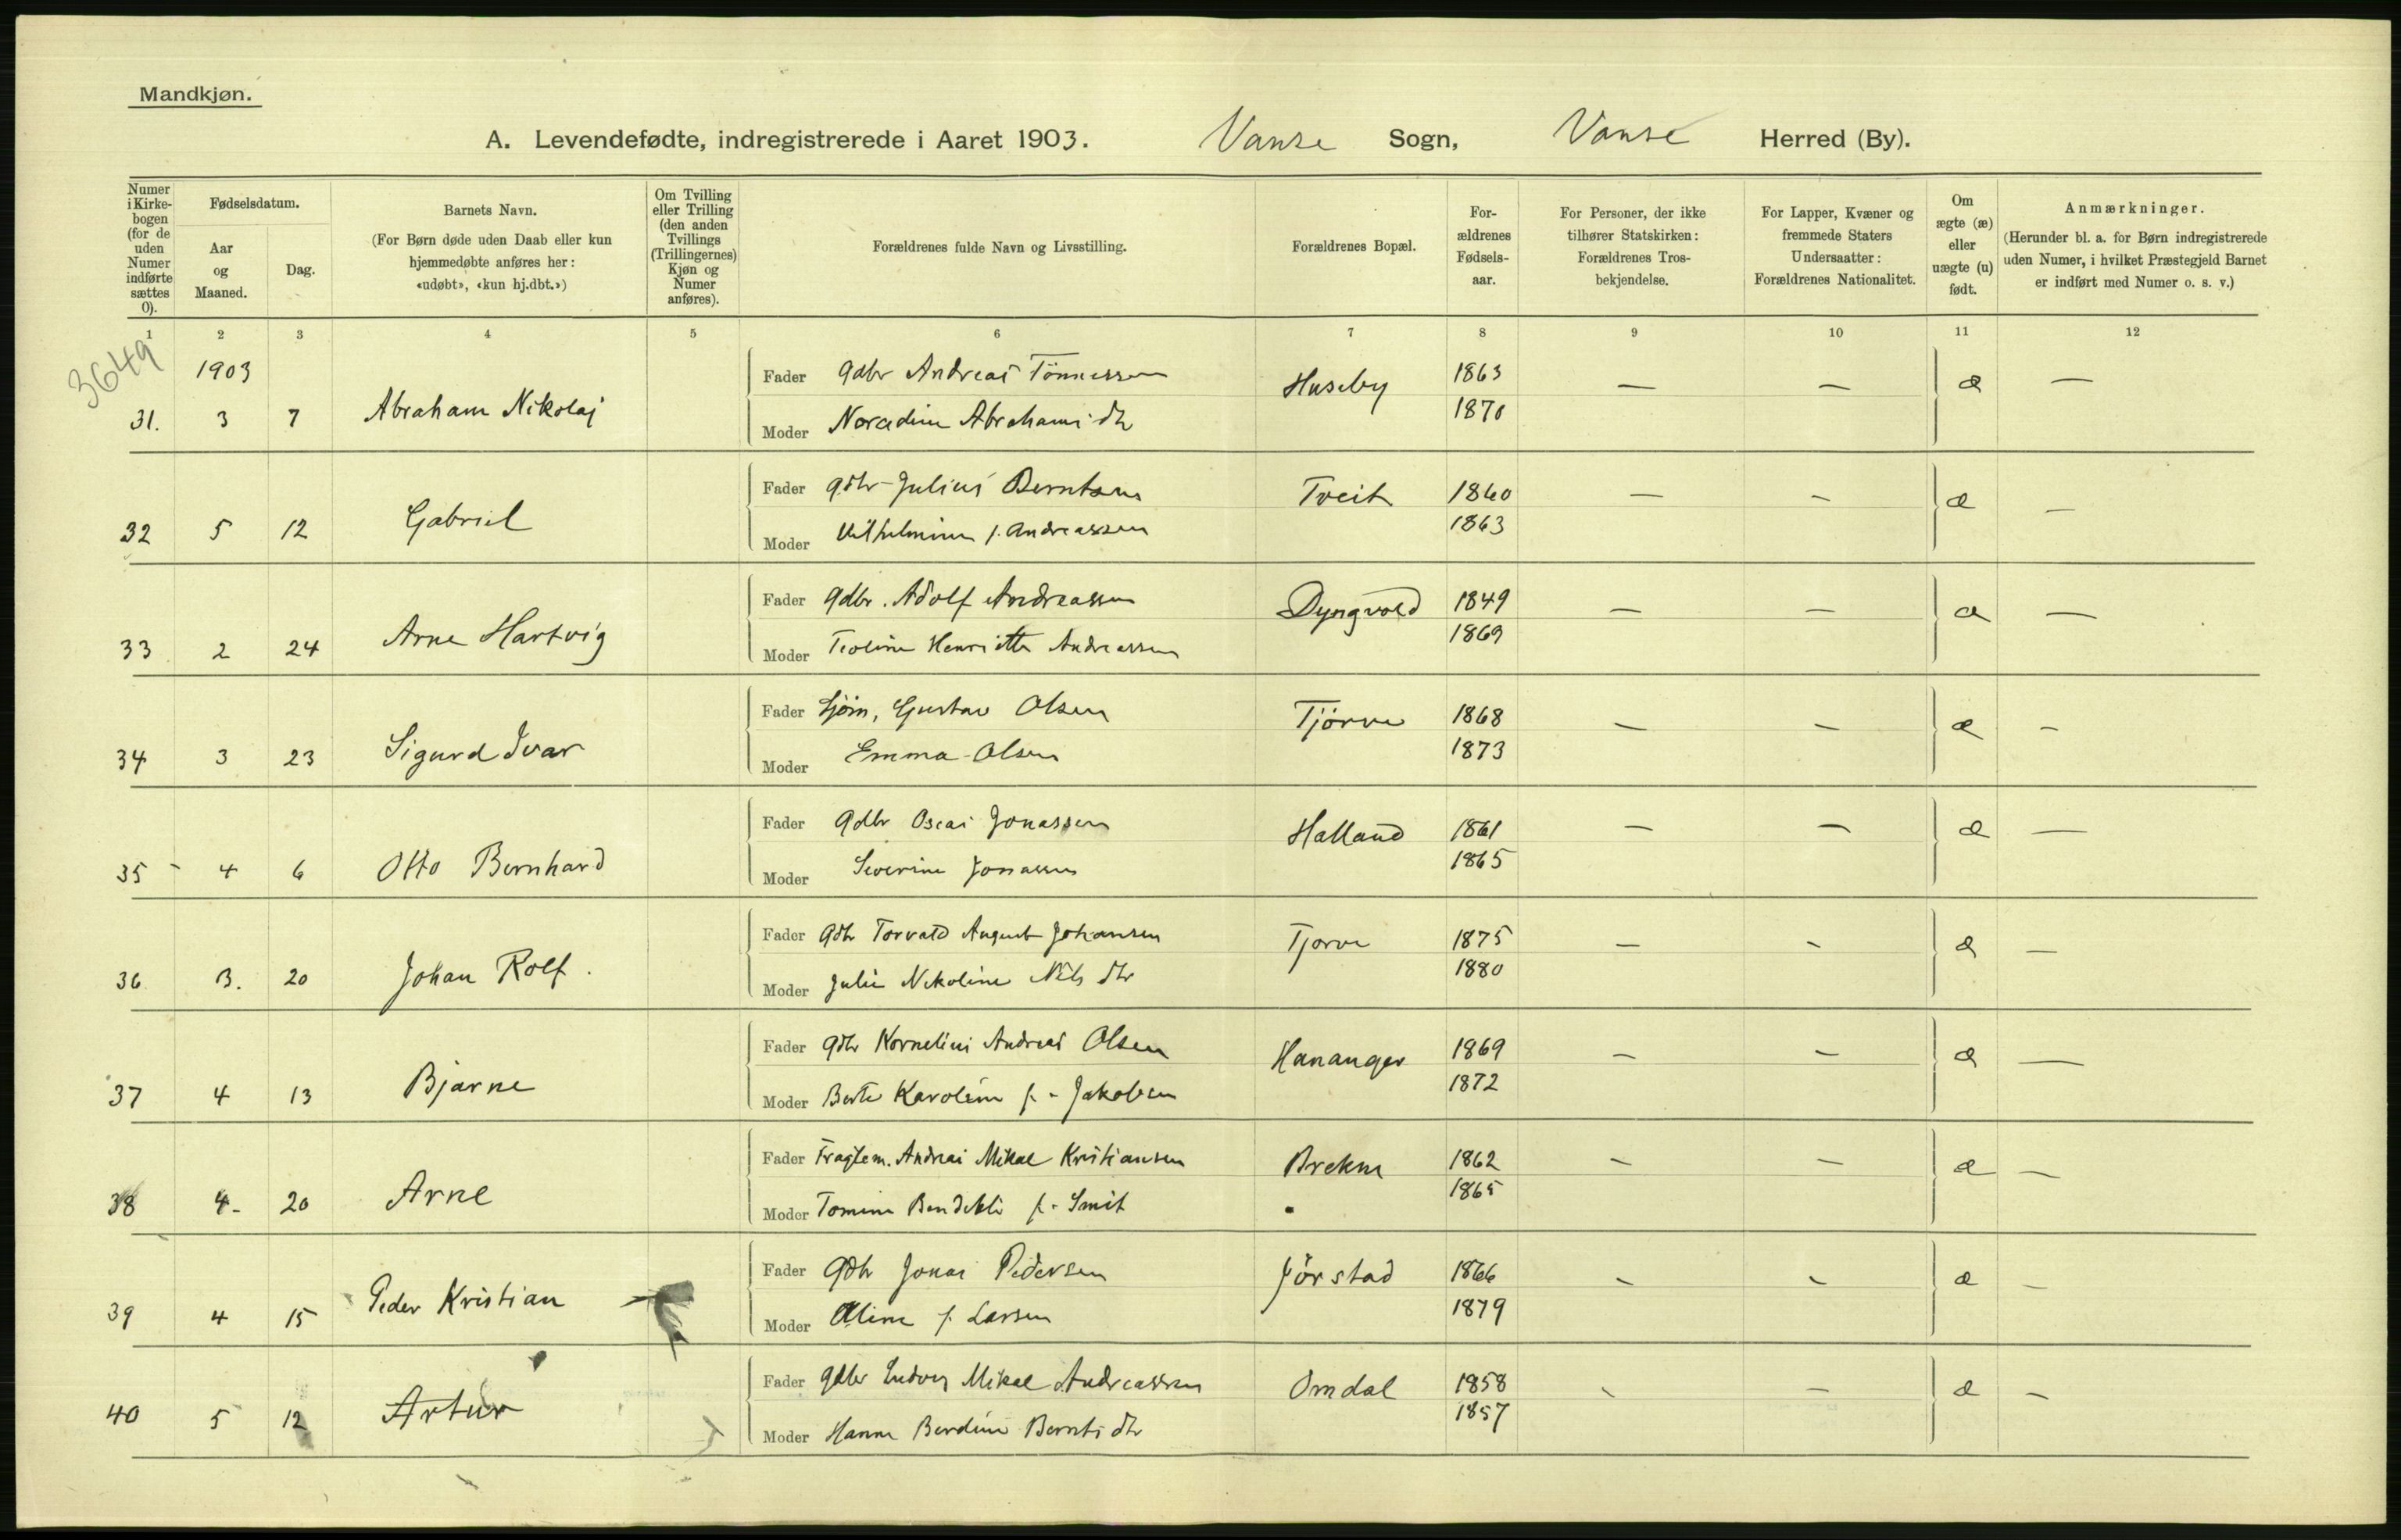 Mandkjøn.
A. Levendefødte, indregistrerede i Aaret 1903. Vanse Sogn, Vanse Herred (By).
Numer i Kirkebogen (for de uden Numer indførte sættes 0).
Fødselsdatum.
Aar og Maaned.
Dag.
Barnets Navn.
(For Børn døde uden Daab eller kun hjemmedøbte anføres her: «udøbt», «kun hj.dbt.»)
Om Tvilling eller Trilling (den anden Tvillings (Trillingernes) Kjøn og Numer anføres).
Forældrenes fulde Navn og Livsstilling.
Forældrenes Bopæl.
Forældrenes Fødselsaar.
For Personer, der ikke tilhører Statskirken: Forældrenes Trosbekjendelse.
For Lapper, Kvæner og fremmede Staters Undersaatter: Forældrenes Nationalitet.
Om ægte (æ) eller uægte (u) født.
Anmærkninger.
(Herunder bl. a. for Børn indregistrerede uden Numer, i hvilket Præstegjeld Barnet er indført med Numer o. s. v.)
1 2 3 4 5 6 7 8 9 10 11 12
3649
1903
Fader Gdbr Andreas Tönnessen Huseby 1863 — — æ —
31. 3 7 Abraham Nikolaj Moder Noradine Abrahams dtr 1870
Fader gdbr Julius Berntsen Tveit 1860 — — æ —
32 5 12 Gabriel Moder Vilhelmine f. Andreassen 1863
Fader Gdbr. Adolf Andreassen Dyngvold 1849 — — æ —
33 2 24 Arne Hartvig Moder Teoline Henriette Andreassen 1869
Fader Sjöm, Gustav Olsen Tjörve 1868 — — æ —
34 3 23 Sigurd Ivar Moder Emma Olsen 1873
Fader Gdbr Oscar Jonassen Halland 1861 — — æ —
35 4 6 Otto Bernhard Moder Severine Jonassen 1865
Fader Gdbr Torvald August Johansen Tjorve 1875 — — æ —
36 3. 20 Johan Rolf. Moder Julie Nikoline Nils dtr 1880
Fader gdbr Kornelius Andreas Olsen Hananger 1869 — — æ —
37 4 13 Bjarne Moder Berte Karoline f. - Jakobsen 1872
Fader Fragtem. Andreas Mikal Kristiansen Brekne 1862 — — æ —
38 4- 20 Arne Moder Tomine Bendikte f. - Smit 1865
Fader Gdbr Jonas Pedersen Jörstad 1866 — — æ —
39 4 15 Peder Kristian Moder Aline f. Larsen 1879
Fader gdbr Ludvig Mikal Andreassen Omdal 1858 — — æ —
40 5 12 Artur Moder Hanne Berdine Bernts dtr 1857